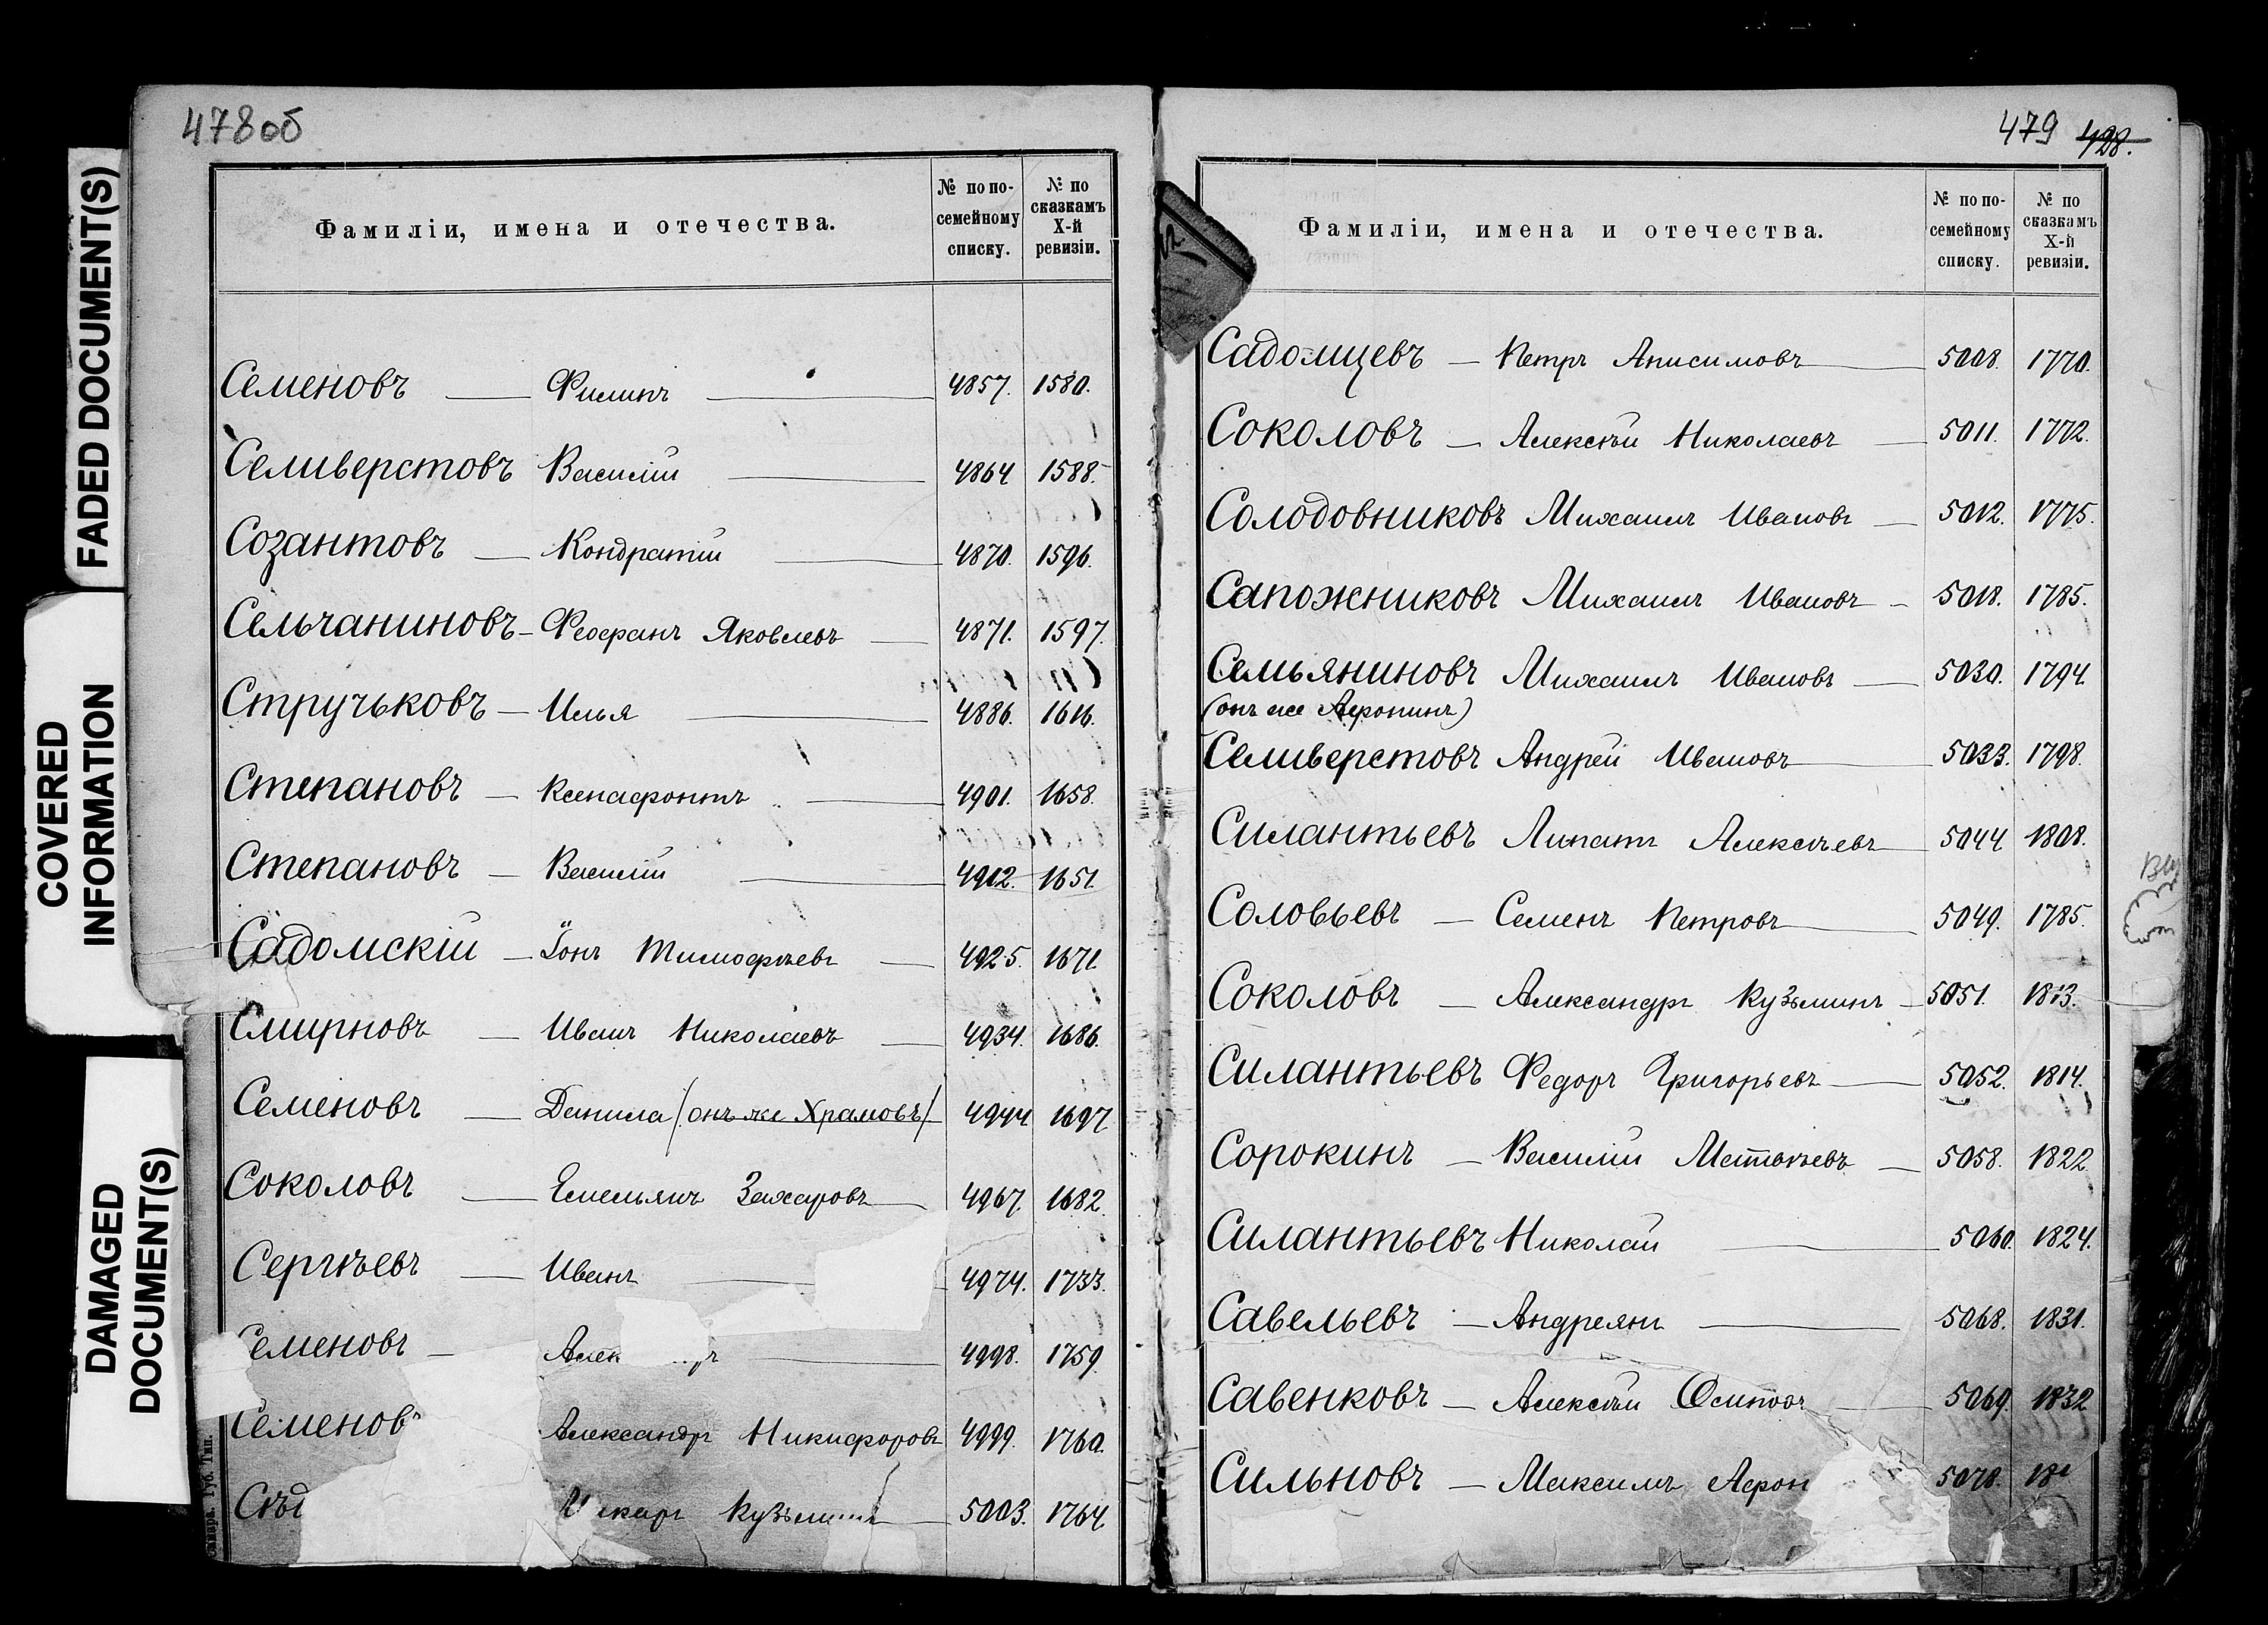 478об
FADED DOCUMENT(S)
COVERED INFORMATION
DAMAGED DOCUMENT(S)
Фамиліи, имена и отечества. № по посемейному списку. № по сказкамъ X-й ревизіи.
Семеновъ — Филипъ — 4857. 1580.
Селиверстовъ Василій — 4864 1588.
Созантовъ — Кондратій — 4870. 1596.
Сельчаниновъ — Феофанъ Яковлевъ — 4871. 1597.
Стручьковъ — Илья — 4886. 1616.
Степановъ — Ксенафонтъ — 4901. 1658.
Степановъ — Василій — 4912. 1651.
Садомскій — Іонъ Тимофѣевъ — 4925. 1671.
Смирновъ — Иванъ Николаевъ — 4934. 1686.
Семеновъ — Данила /онъ же Храмовъ/ 4944 1697
Соколовъ — Емельянъ Захаровъ — 4967. 1682.
Сергѣевъ — Иванъ — 4974. 1733.
еменовъ — Алек ръ — 4998. 1759.
Семенов Александръ Никифоровъ 4999. 1760.
Сѣд каръ Кузьминъ — 5003. 1764.
Губ. Тип.
479 428.
Фамиліи, имена и отечества. № по посемейному списку. № по сказкамъ X-й ревизіи.
Садомцевъ — Петръ Анисимовъ — 5008. 1770.
Соколовъ — Алексѣй Николаевъ — 5011. 1772.
Солодовниковъ Михаилъ Ивановъ — 5012. 1775.
Сапожниковъ Михаилъ Ивановъ — 5018. 1785.
Семьяниновъ Михаилъ Ивановъ — 5030. 1794.
(онъ же Аѳронинъ)
Селиверстовъ Андрей Ивановъ — 5033. 1798.
Силантьевъ Липатъ Алексѣевъ — 5044 1808.
Соловьевъ — Семенъ Петровъ — 5049. 1785.
Соколовъ — Александръ Кузьминъ — 5051. 1813.
Силантьевъ Федоръ Григорьевъ — 5052. 1814.
Сорокинъ — Василій Матвѣевъ — 5058. 1822.
Силантьевъ Николай — 5060. 1824.
Савельевъ — Андреянъ — 5068. 1831.
Савенковъ — Алексѣй Осиповъ — 5069. 1832
Сильновъ — Максимъ Афон 5078. 18